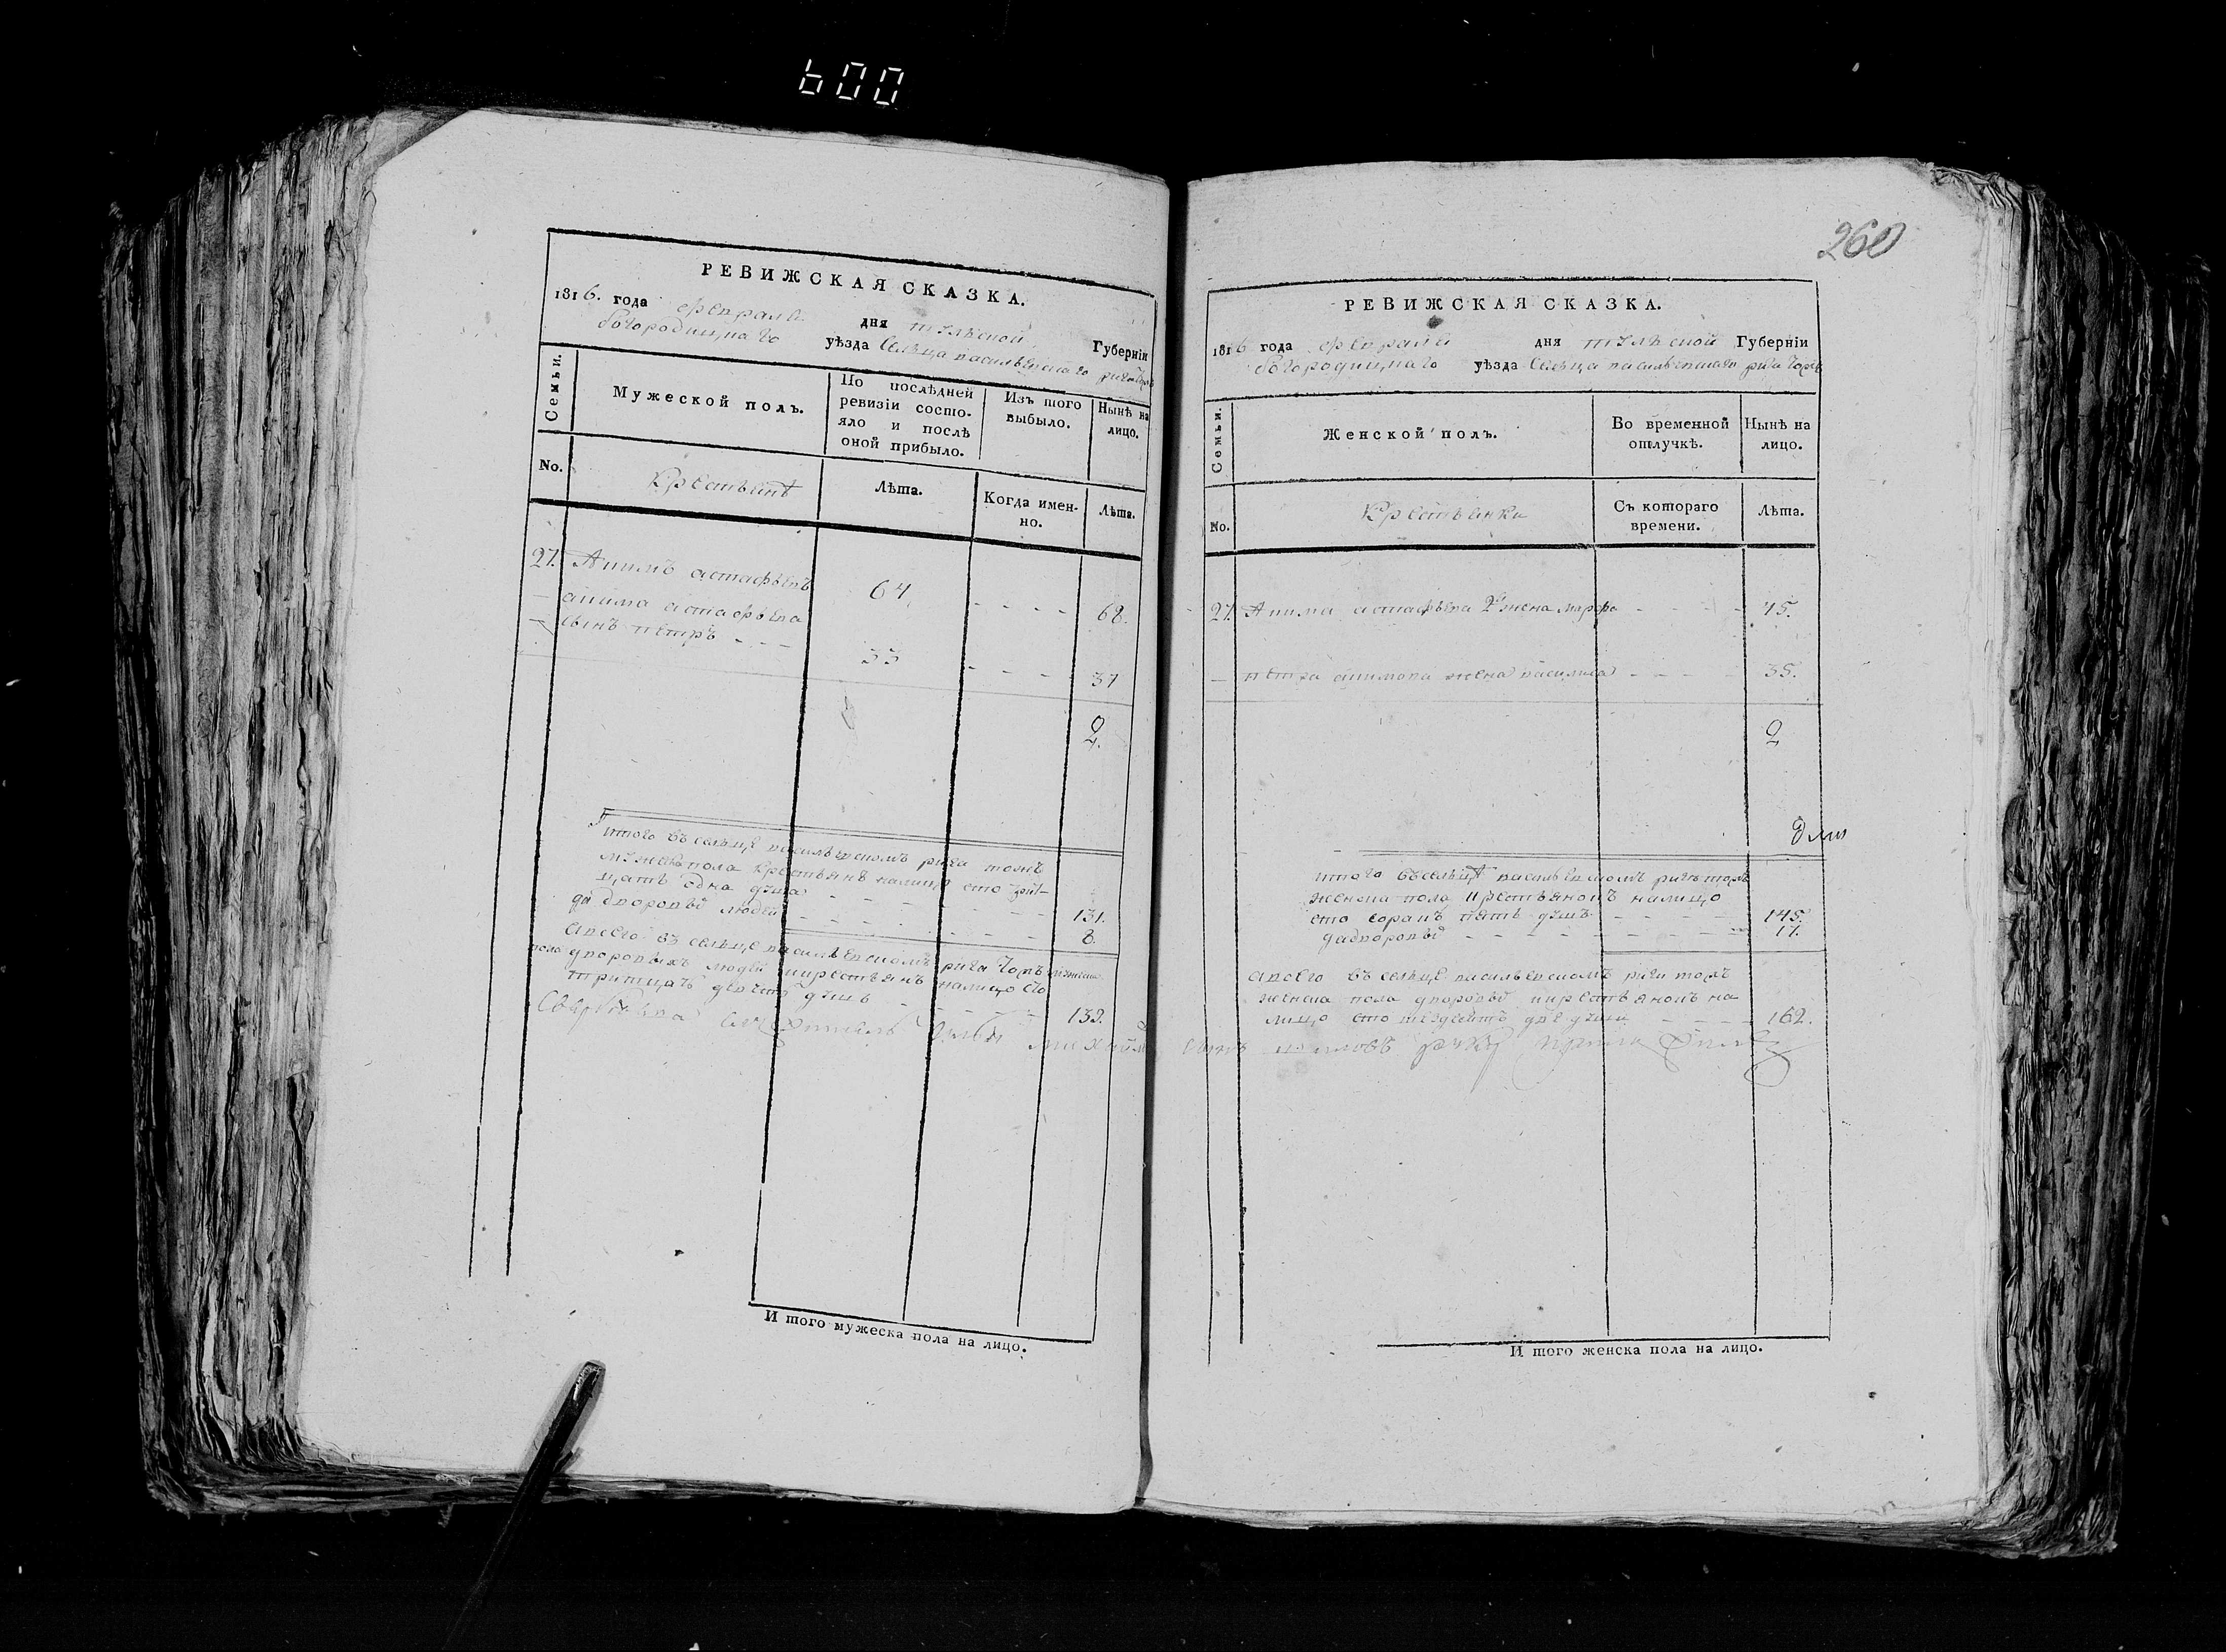 600
РЕВИЖСКАЯ СКАЗКА.
1816. года февраля дня тульской Губерніи
богородицкаго уѣзда Селца васильевскаго
Семьи.
Мужеской полъ.
По послѣдней ревизіи состо-
яло и послѣ
оной прибыло.
Изъ того
выбыло.
Нынѣ на
лицо.
No.
Крестьянѣ
Лѣта.
Когда имен-
но.
Лѣта.
27. Акимъ астафьевъ 64 68.
акима астафьева
сынъ петръ 33 37
2.
итого въ селцѣ васильевскомъ
мужеска пола крестьянъ налицо сто трит-
цать одна душа 131.
да дворовыѣ людей 8.
авсего въ селцѣ васильевскомъ
пола дворовыхъ людей икрестьянъ налицо сто
тритцать девять душъ 139.
И того мужеска пола на лицо.
260
РЕВИЖСКАЯ СКАЗКА.
1816 года февраля дня тульской Губерніи
богородицкаго уѣзда Селца васильевскаго
Семьи.
Женской полъ.
Во временной
отлучкѣ.
Нынѣ на
лицо.
No.
Крестьянки
Съ котораго
времени.
Лѣта.
27. Акима астафьева 2я жена марфа 45.
петра акимова жена василиса 35.
2
итого въселцѣ васильевскомъ
женска пола крестьянокъ налицо
сто сорокъ пять душъ 145.
дадворовыѣ 17.
авсего въ селцѣ васильевскомъ
женска пола дворовыѣ икрестьянокъ на
лицо сто шездесятъ две души 162.
руку
И того женска пола на лицо.